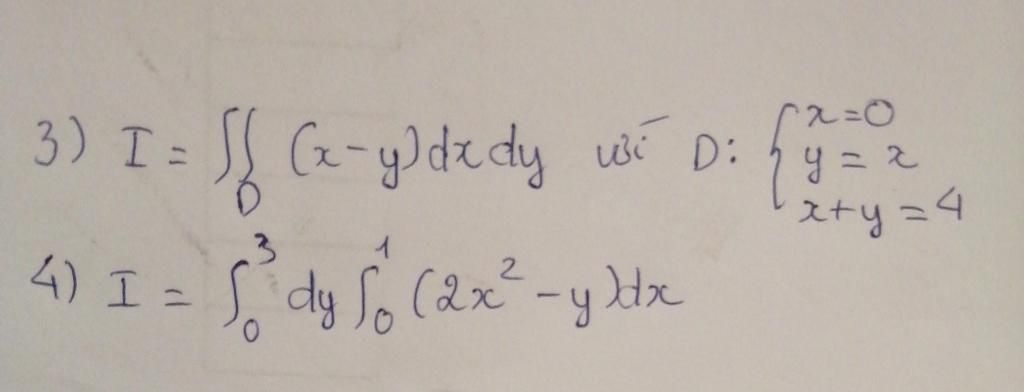 3) I = ∬_D (x-y)dxdy với D: { x=0
y = x
x+y=4
4) I = ∫₀³ dy ∫₀¹ (2x² - y)dx